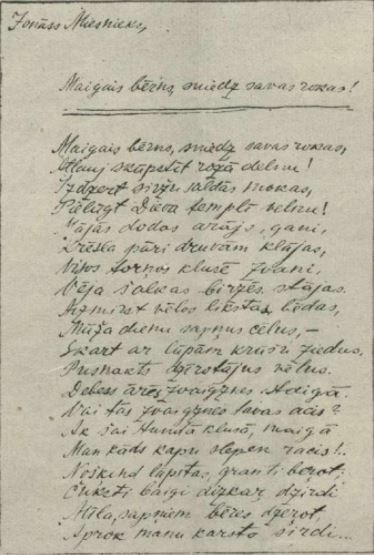 Jonāss Miesnieks,
Maigais bērns, sniedz savas rokas!
Maigais bērns, sniedz savas rokas,
Atļauj skūpstīt rožu delnu!
Izdzert siržu saldās mokas,
Pielūgt Dieva templī velnu!
Mājās dodas arājs, gani,
Krēsla pāri druvām klājas,
Visos torņos klusē zvani,
Vēja šalkas birzēs stājas.
Aizmirst vēlos likstas, bēdas,
Mūža dienu sapņus cēlus,
Skart ar lūpām krūšu ziedus,
Pusnakts dzērotājus vēlus.
Debess ārēs zvaigznes staigā.
Vai tās zvaigznes tavas acis?
Ak šai stundā klusā, maigā
Man kāds kapu slepen racis!..
Noškind lāpstas, granti berot,
Čuksti baigi dizkar dzirdi
Mīla, sapņiem bēres dzerot,
Aprok manu karsto sirdi...